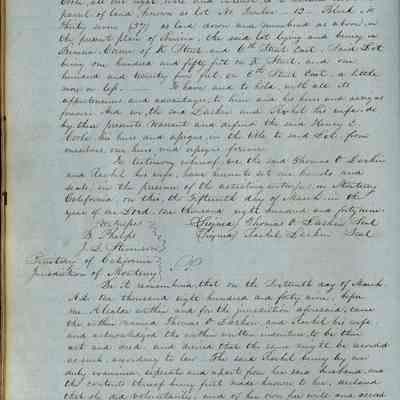 all our right and interest
parcel of land, known as Lot No. Number - 12 - Block,
thirty seven (37) as laid down and numbered as above, on
the present plan of Benicia, the said lot lying and being in
Benicia, Corner of K Street and 6th Street East. Said Lot
being one hundred and fifty feet on K Street, and one
hundred and twenty five feet, on 6th Street East, a little
more or less. To have and to hold, with all its
appurtenances and advantages, to him and his heirs and assigns
forever. And we, the said Larkin and Rachel his wife, do
by these presents warrant and defend the said Henry
his heirs and assigns, in the title to said Lot, from
ourselves, our heirs and assigns forever.
In testimony whereof, we, the said Thomas O. Larkin
and Rachel his wife, have hereunto set our hands and
seals, in the presence of the attesting witnesses, in Monterey
California, on this, the fifteenth day of March, in the
year of our Lord, One thousand eight hundred and forty nine.
Witnesses (Signed) Thomas O. Larkin Seal
(Signed) Rachel Larkin Seal
J. D. Stevenson
Territory of California
Jurisdiction of Monterey
Be it remembered, that on the Sixteenth day of March
A.D. One thousand eight hundred and forty nine, before
me Alcalde within and for the jurisdiction aforesaid, came
the within named Thomas O. Larkin, and Rachel his wife
and acknowledged the within written indenture, to be their
act and deed, and desired that the same might be recorded
as such, according to law. The said Rachel being by me
duly examined, separate and apart from her said husband, and
the contents thereof being first made known to her, declared
that she did voluntarily, and of her own free will and accord